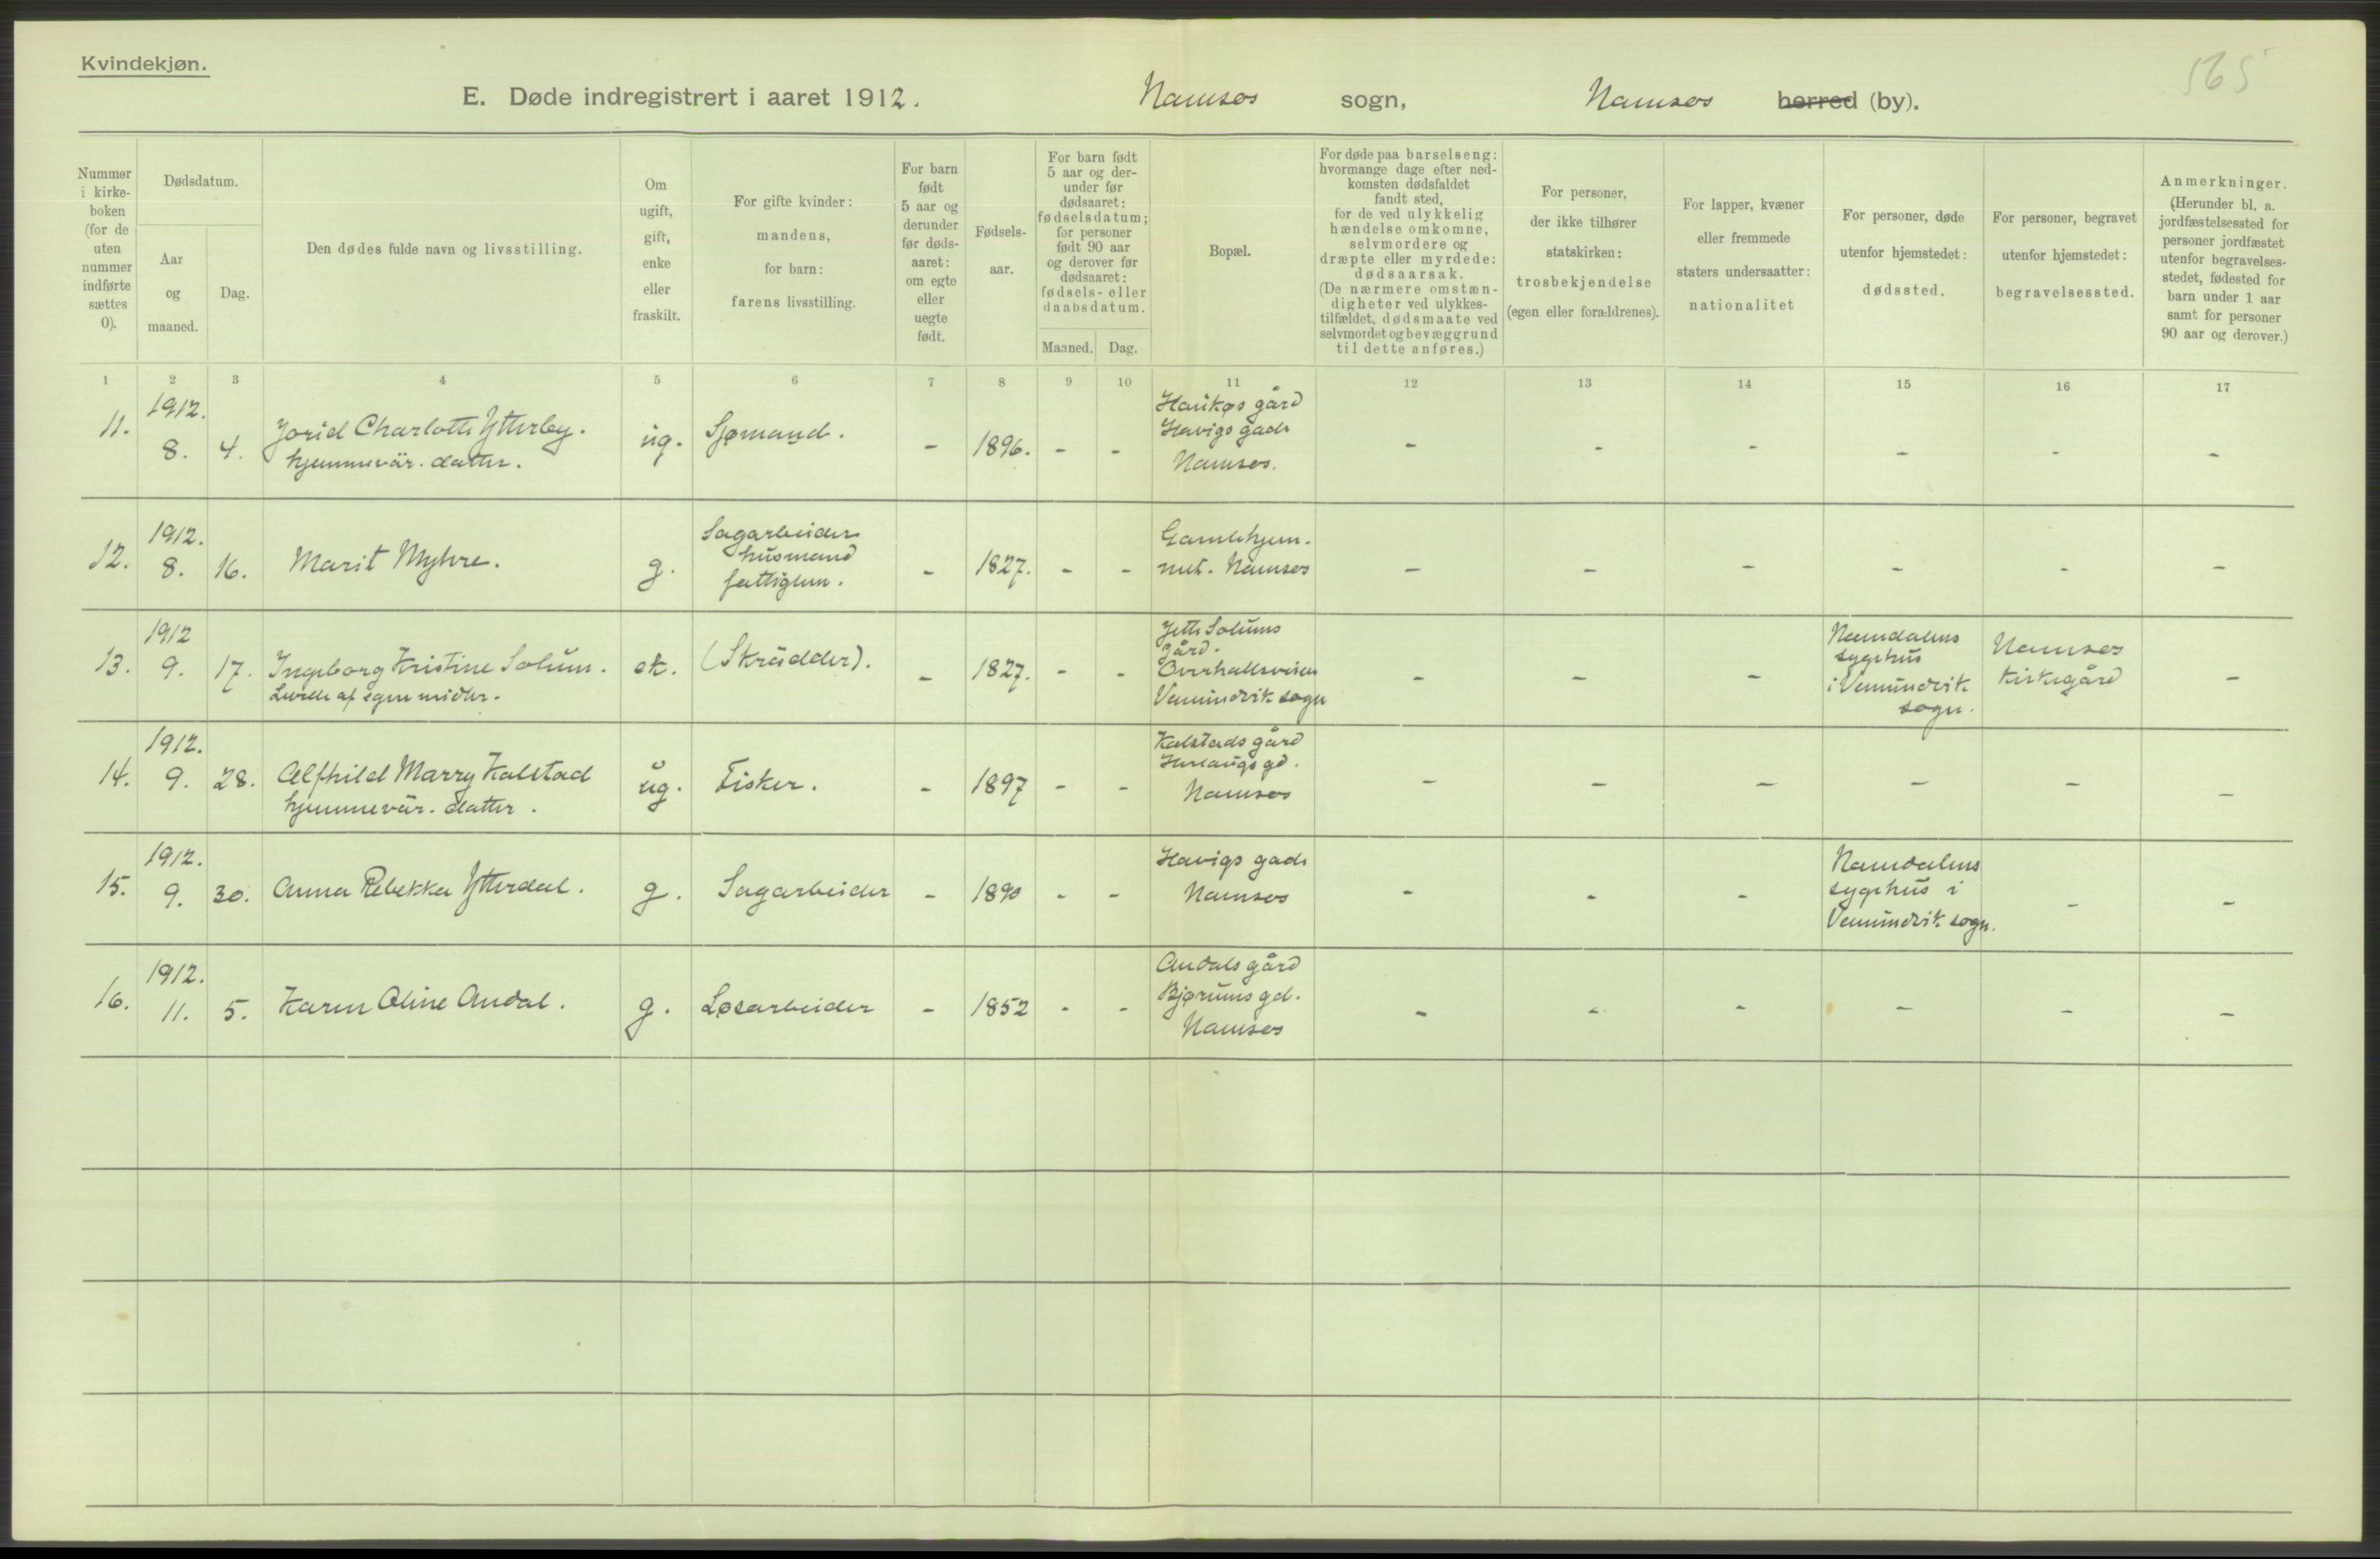 Kvindekjøn.
565
E. Døde indregistrert i aaret 1912. Namsos sogn, Namsos herred (by).
Nummer i kirkeboken (for de uten nummer indførte sættes 0).
Dødsdatum.
Aar og maaned.
Dag.
Den dødes fulde navn og livsstilling.
Om ugift, gift, enke eller fraskilt.
For gifte kvinder: mandens, for barn: farens livsstilling.
For barn født 5 aar og derunder før dødsaaret: om egte eller uegte født.
Fødselsaar.
For barn født 5 aar og derunder før dødsaaret: fødselsdatum; for personer født 90 aar og derover før dødsaaret: fødsels- eller daabsdatum.
Maaned. Dag.
Bopæl.
For døde paa barselseng: hvormange dage efter nedkomsten dødsfaldet fandt sted, for de ved ulykkelig hændelse omkomne, selvmordere og dræpte eller myrdede: dødsaarsak. (De nærmere omstændigheter ved ulykkestilfældet, dødsmaate ved selvmordet og bevæggrund til dette anføres.)
For personer, der ikke tilhører statskirken: trosbekjendelse (egen eller forældrenes).
For lapper, kvæner eller fremmede staters undersaatter: nationalitet
For personer, døde utenfor hjemstedet: dødssted.
For personer, begravet utenfor hjemstedet: begravelsessted.
Anmerkninger. (Herunder bl. a. jordfæstelsessted for personer jordfæstet utenfor begravelsesstedet, fødested for barn under 1 aar samt for personer 90 aar og derover.)
1 2 3 4 5 6 7 8 9 10 11 12 13 14 15 16 17
11. 1912. 8. 4. Jorid Charlotte Ytterby. hjemmevär. datter. ug. Sjømand. - 1896. - - gård Havigs gade Namsos. - - - - - -
12. 1912. 8. 16. Marit Myhre. g. Sagarbeider husmand fattiglem. - 1827. - - Gamlehjemmet. Namsos - - - - - -
13. 1912 9. 17. Ingeborg Kristine Solum. Levede af egne midler. ek. (Skrädder). - 1827. - - Solums gård. Overhallsveien Vemundvik sogn - - - Namdalens sygehus i Vemundvik sogn. Namsos kirkegård -
14. 1912. 9. 28. Alfhild Marry Kalstad hjemmevär. datter. ug. Fisker. - 1897 - - Kalstads gård Herlaugs gd. Namsos - - - - - -
15. 1912. 9. 30. Anna Rebekka Ytterdal. g. Sagarbeider - 1890 - - Havigs gade Namsos - - - Namdalens sygehus i Vemundvik sogn. - -
16. 1912. 11. 5. Karen Oline Andal. g. Løsarbeider - 1852 - - Andals gård Bjørums gd. Namsos - - - - - -